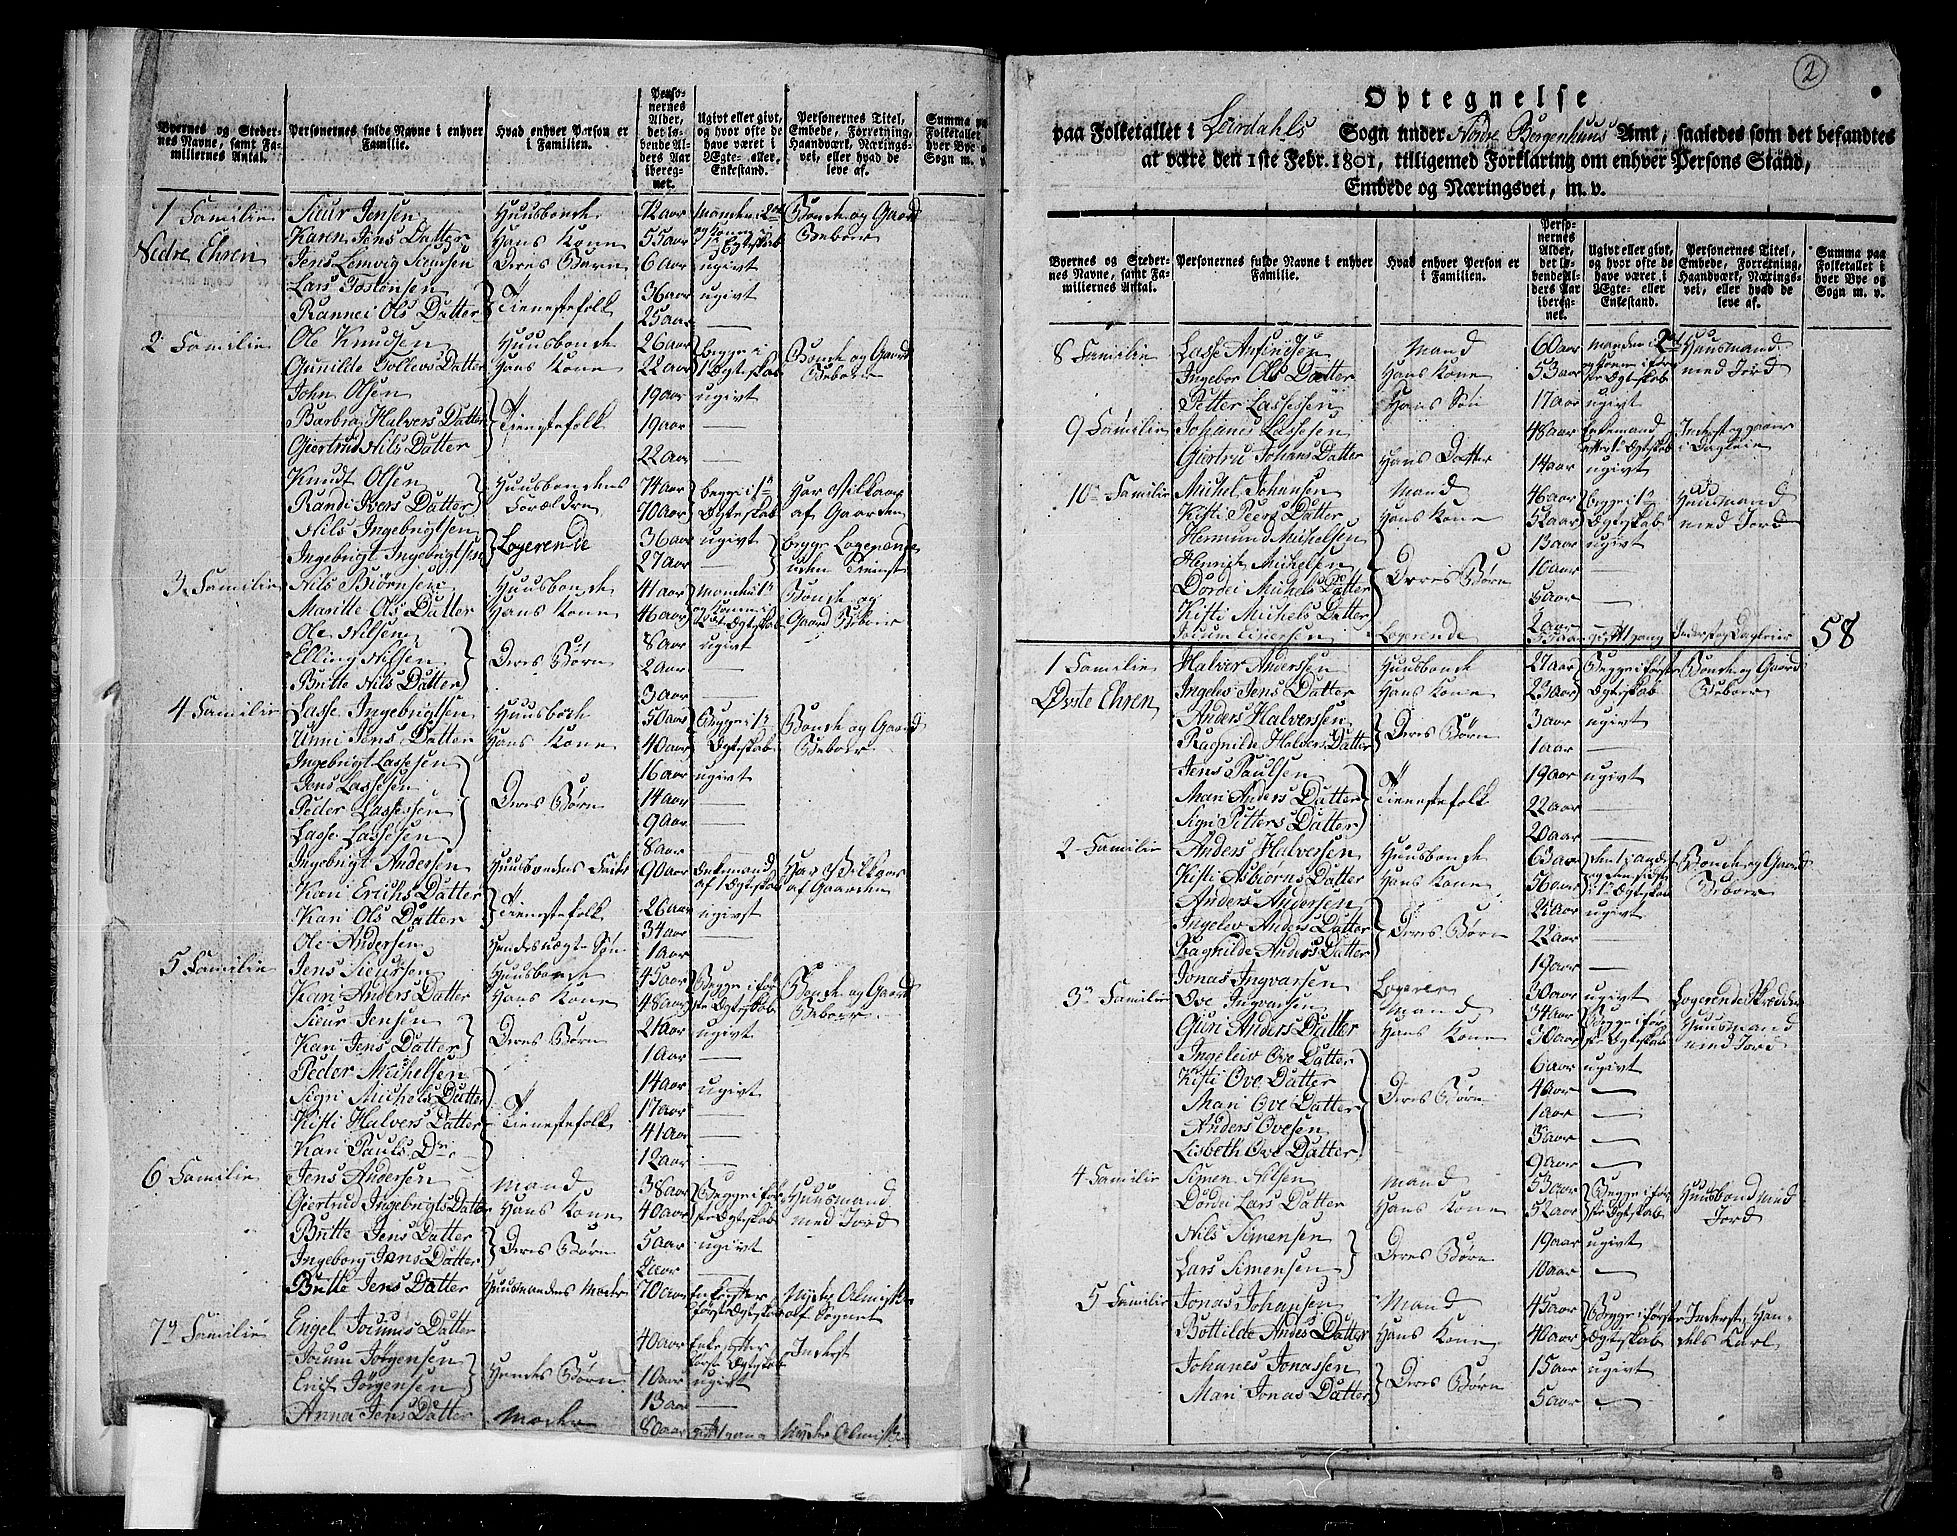 Byernes og Steder-
nes Navne, samt Fa-
miliernes Antal.
Personernes fulde Navne i enhver
Familie.
Hvad enhver Person er
i Familien.
Perso-
nernes
Alder,
det lø-
bende Al-
ders Aar
ibereg-
net.
Ugivt eller givt,
og hvor ofte de
have været i
Ægte- eller
Enkestand.
Personernes Titel,
Embede, Forretning,
Haandværk, Nærings-
vei, eller hvad de
leve af.
Summa paa
Folketallet
hver Bye og
Sogn m. v.
1 Familie Siur Jensen Huusbonde 72 aar Manden i 2det Bonde og Gaard
Nedre Ehren Karen Jens Datter Hans Kone 55 aar og Konen i 1te Egteskab Beboer
Jens Lemvig Siursen Deres Barn 6 aar ugivt
Lars Tostensen Tienestefolk 36 aar ugivt
Rannei Ols Datter 25 aar —
2 Familie Ole Knudsen Huusbonde 26 aar begge i Bonde og Gaard
Gunilde Tollevs Datter Hans Kone 22 aar 1 Egteskab Beboer
John Olsen 19 aar ugivt
Barbra Halvers Datter Tienestefolk 19 aar —
Giertrud Nils Datter 22 aar —
Knudt Olsen Huusbondens 74 aar begge i 1te Har Vilkaar
Randi Ivers Datter Forældre 70 aar Egteskab af Gaarden
Nils Ingebrigtsen Logerende 36 aar ugivt begge Logerende
Ingebrigt Ingebrigtsen 27 aar — uden Tienest
3 Familie Nils Biørnsen Huusbonde 41 aar Bonde og
Maritte Ols Datter Hans Kone 46 aar Gaard Beboer
Ole Nilsen 8 aar ugivt
Elling Nilsen Deres Børn 2 aar —
Britte Nils Datter 3 aar —
4 Familie Lasse Ingebrigtsen Huusbonde 50 aar Begge i 1te Bonde og Gaard
Unni Jens Datter Hans Kone 40 aar Egteskab Beboer
Ingebrigt Lassesen 16 aar ugivt
Jens Lassesen Deres Børn 14 aar —
Peder Lassesen 9 aar —
Lasse Lassesen 8 aar —
Ingebrigt Andersen Huusbondens Fader 90 aar Enkemand Har Vilkaar
af 1 Egteskab af Gaarden
Kari Erichs Datter Tienestefolk 26 aar ugivt
Kari Ols Datter 34 aar —
Ole Andersen Hendes uægte Søn 1 aar
5 Familie Jens Siursen Huusbonde 45 aar Begge i før- Bonde og Gaard
Kari Anders Datter Hans Kone 48 aar ste Egteskab Beboer
Siur Jensen Deres Børn 21 aar ugivt
Kari Jens Datter 1 aar —
Peder Michelsen 14 aar ugivt
Sigri Michels Datter Tienestefolk 17 aar —
Kisti Halvers Datter 41 aar —
Kari Pauls Dr 12 aar —
6 Familie Jens Andersen Mand 38 aar Begge i før- Huusmand
Giertrud Ingebrigts Datter Hans Kone 40 aar ste Egteskab med Jord
Britte Jens Datter Deres Børn 5 aar ugivt
Ingeborg Jens Datter 2 aar —
Britte Jens Datter Huusmandens Moder 70 aar Enke efter Nyder Almisse
første Egteskab af Sognet
7de Familie Engel Jorums Datter 40 aar Enke efter Inderst
første Egteskab
Jorum Jørgensen Hendes Børn 10 aar ugivt
Erich Jørgensen 13 aar —
Anna Jens Datter Moder 80 aar Nyder Almisse
2
Optegnelse
paa Folketallet i Leirdahls Sogn under Nordre Bergenhuus Amt, saaledes som det befandtes
at være den 1ste Febr. 1801, tilligemed Forklaring om enhver Persons Stand,
Embede og Næringsvei, m. v.
Byernes og Steder-
nes Navne, samt Fa-
miliernes Antal.
Personernes fulde Navne i enhver
Familie.
Hvad enhver Person er
i Familien.
Perso-
nernes
Alder,
det lø-
bende Al-
ders Aar
ibereg-
net.
Ugivt eller givt,
og hvor ofte de
have været i
Ægte- eller
Enkestand.
Personernes Titel,
Embede, Forretning,
Haandværk, Nærings-
vei, eller hvad de
leve af.
Summa paa
Folketallet i
hver Bye og
Sogn m. v.
8 Familie Lasse Anfindsen Mand 60 aar Manden i 2det Huusmand
Ingebor Ols Datter Hans Kone 53 aar og Konen i før- ste Egteskab med Jord
Petter Lassesen Hans Søn 17 aar ugivt
9 Familie Johanes Lassesen 48 aar Enkemand Inderst og gaaer
efter 1 Egteskab i Dagleie
Giertru Johans Datter Hans Datter 14 aar ugivt
10de Familie Michel Johansen Mand 46 aar begge i 1te Huusmand
Kisti Peers Datter Hans Kone 52 aar Egteskab med Jord
Hermund Michelsen 13 aar ugivt
Henrich Michelsen Deres Børn 10 aar —
Dordei Michels Datter 8 aar —
Kisti Michels Datter 2 aar —
Jorum Logerende Inderst og Dagleier 58
1 Familie Halver Anderssen Huusbonde 27 aar Begge i første Bonde og Gaard
Øvste Ehren Ingelev Jens Datter Hans Kone 23 aar Egteskab Beboer
Anders Halverssen Deres Børn 3 aar ugivt
Ragnilde Halvers Datter 1 aar —
Jens Paulsen 19 aar ugivt
Mari Anders Datter Tienestefolk 22 aar —
Sigri Pitters Datter 20 aar —
2 Familie Anders Halversen Huusbonde 63 aar Bonde og Gaard
Kisti Asbiørns Datter Hans Kone 56 aar Beboer
Anders Andersen 24 aar ugivt
Ingelev Anders Datter Deres Børn 22 aar —
Ragnilde Anders Datter 19 aar —
Jonas Ingvarsen Logerer 30 aar ugivt Logerende Skredder
3de Familie Ove Ingvarsen Mand 34 aar Begge i før- Huusmand
Guri Anders Datter Hans Kone 30 aar ste Egteskab med Jord
Ingeleiv Ove Datter 6 aar ugivt
Kisti Ove Datter 4 aar —
Mari Ove Datter Deres Børn 1 aar —
Anders Ovesen 3 aar —
Lisbeth Ove Datter 9 aar —
4 Familie Simen Nilsen Mand 53 aar Begge i før- Huusbond med
Dordei Lars Datter Hans Kone 52 aar ste Egteskab Jord
Nils Simensen Deres Børn 19 aar ugivt
Lars Simensen 10 aar —
5 Familie Jonas Johansen Mand 45 aar Begge i første Inderst, Han-
Bottilde Anders Datter Hans Kone 46 aar Egteskab dels Karl
Johanes Jonassen Deres Børn 15 aar ugivt
Mari Jonas Datter 5 aar —